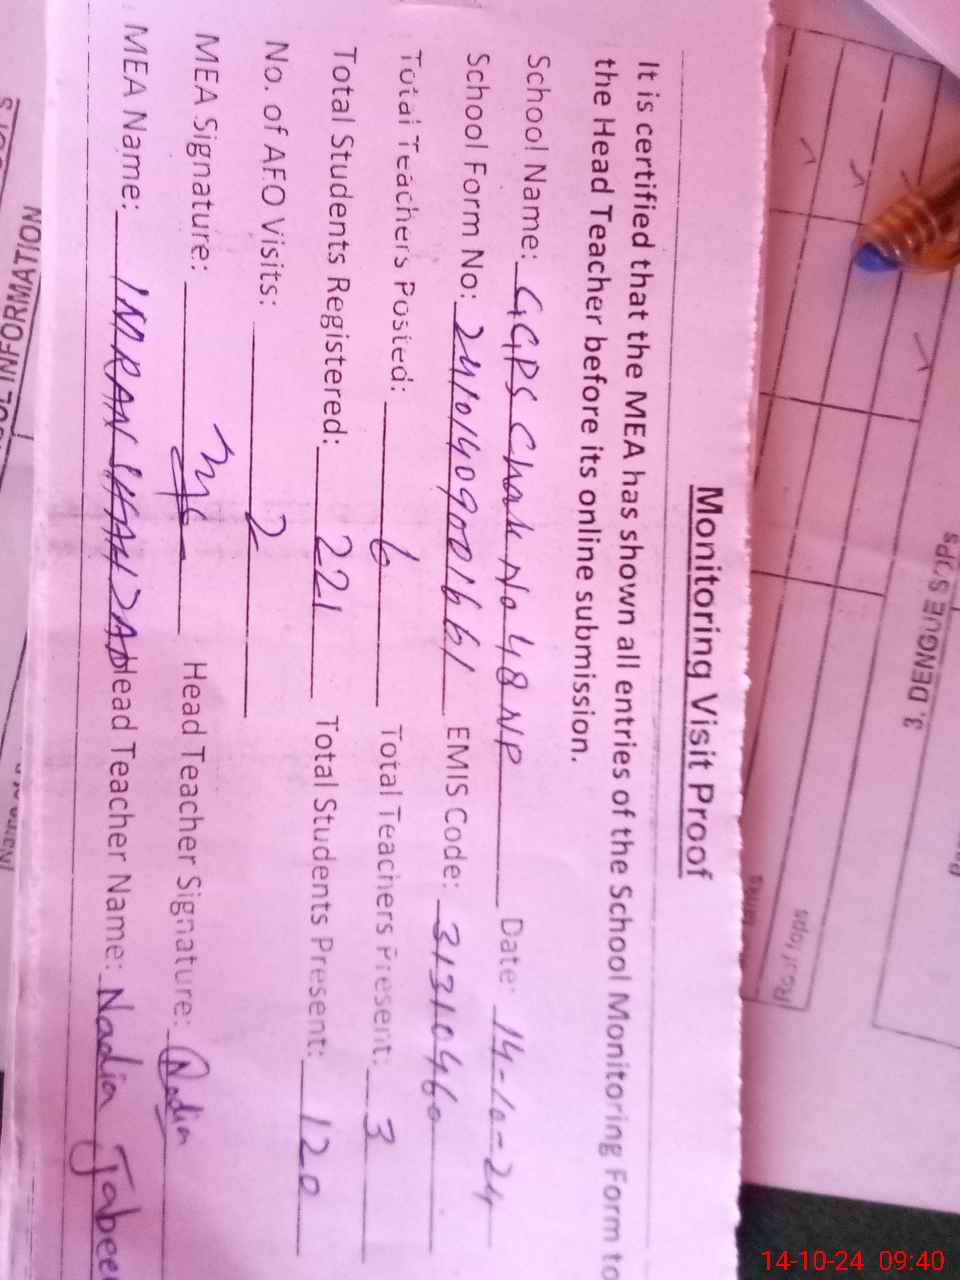 Monitoring Visit Proof
It is certified that the MEA has shown all entries of the School Monitoring Form to
the Head Teacher before its online submission.
School Name: GGPS Chak No 48 NP Date: 14-10-24
School Form No: 24101409001661 EMIS Code: 31310460
Total Teachers Posted: 6 Total Teachers Present: 3
Total Students Registered: 221 Total Students Present: 120
No. of AEO Visits: 2
MEA Signature: Head Teacher Signature: Nadia
MEA Name: IMRAN SHAHZAD Head Teacher Name: Nadia Jabeen
3. DENGUE SOPS
Roof Tops
INFORMATION
14-10-24 09:40